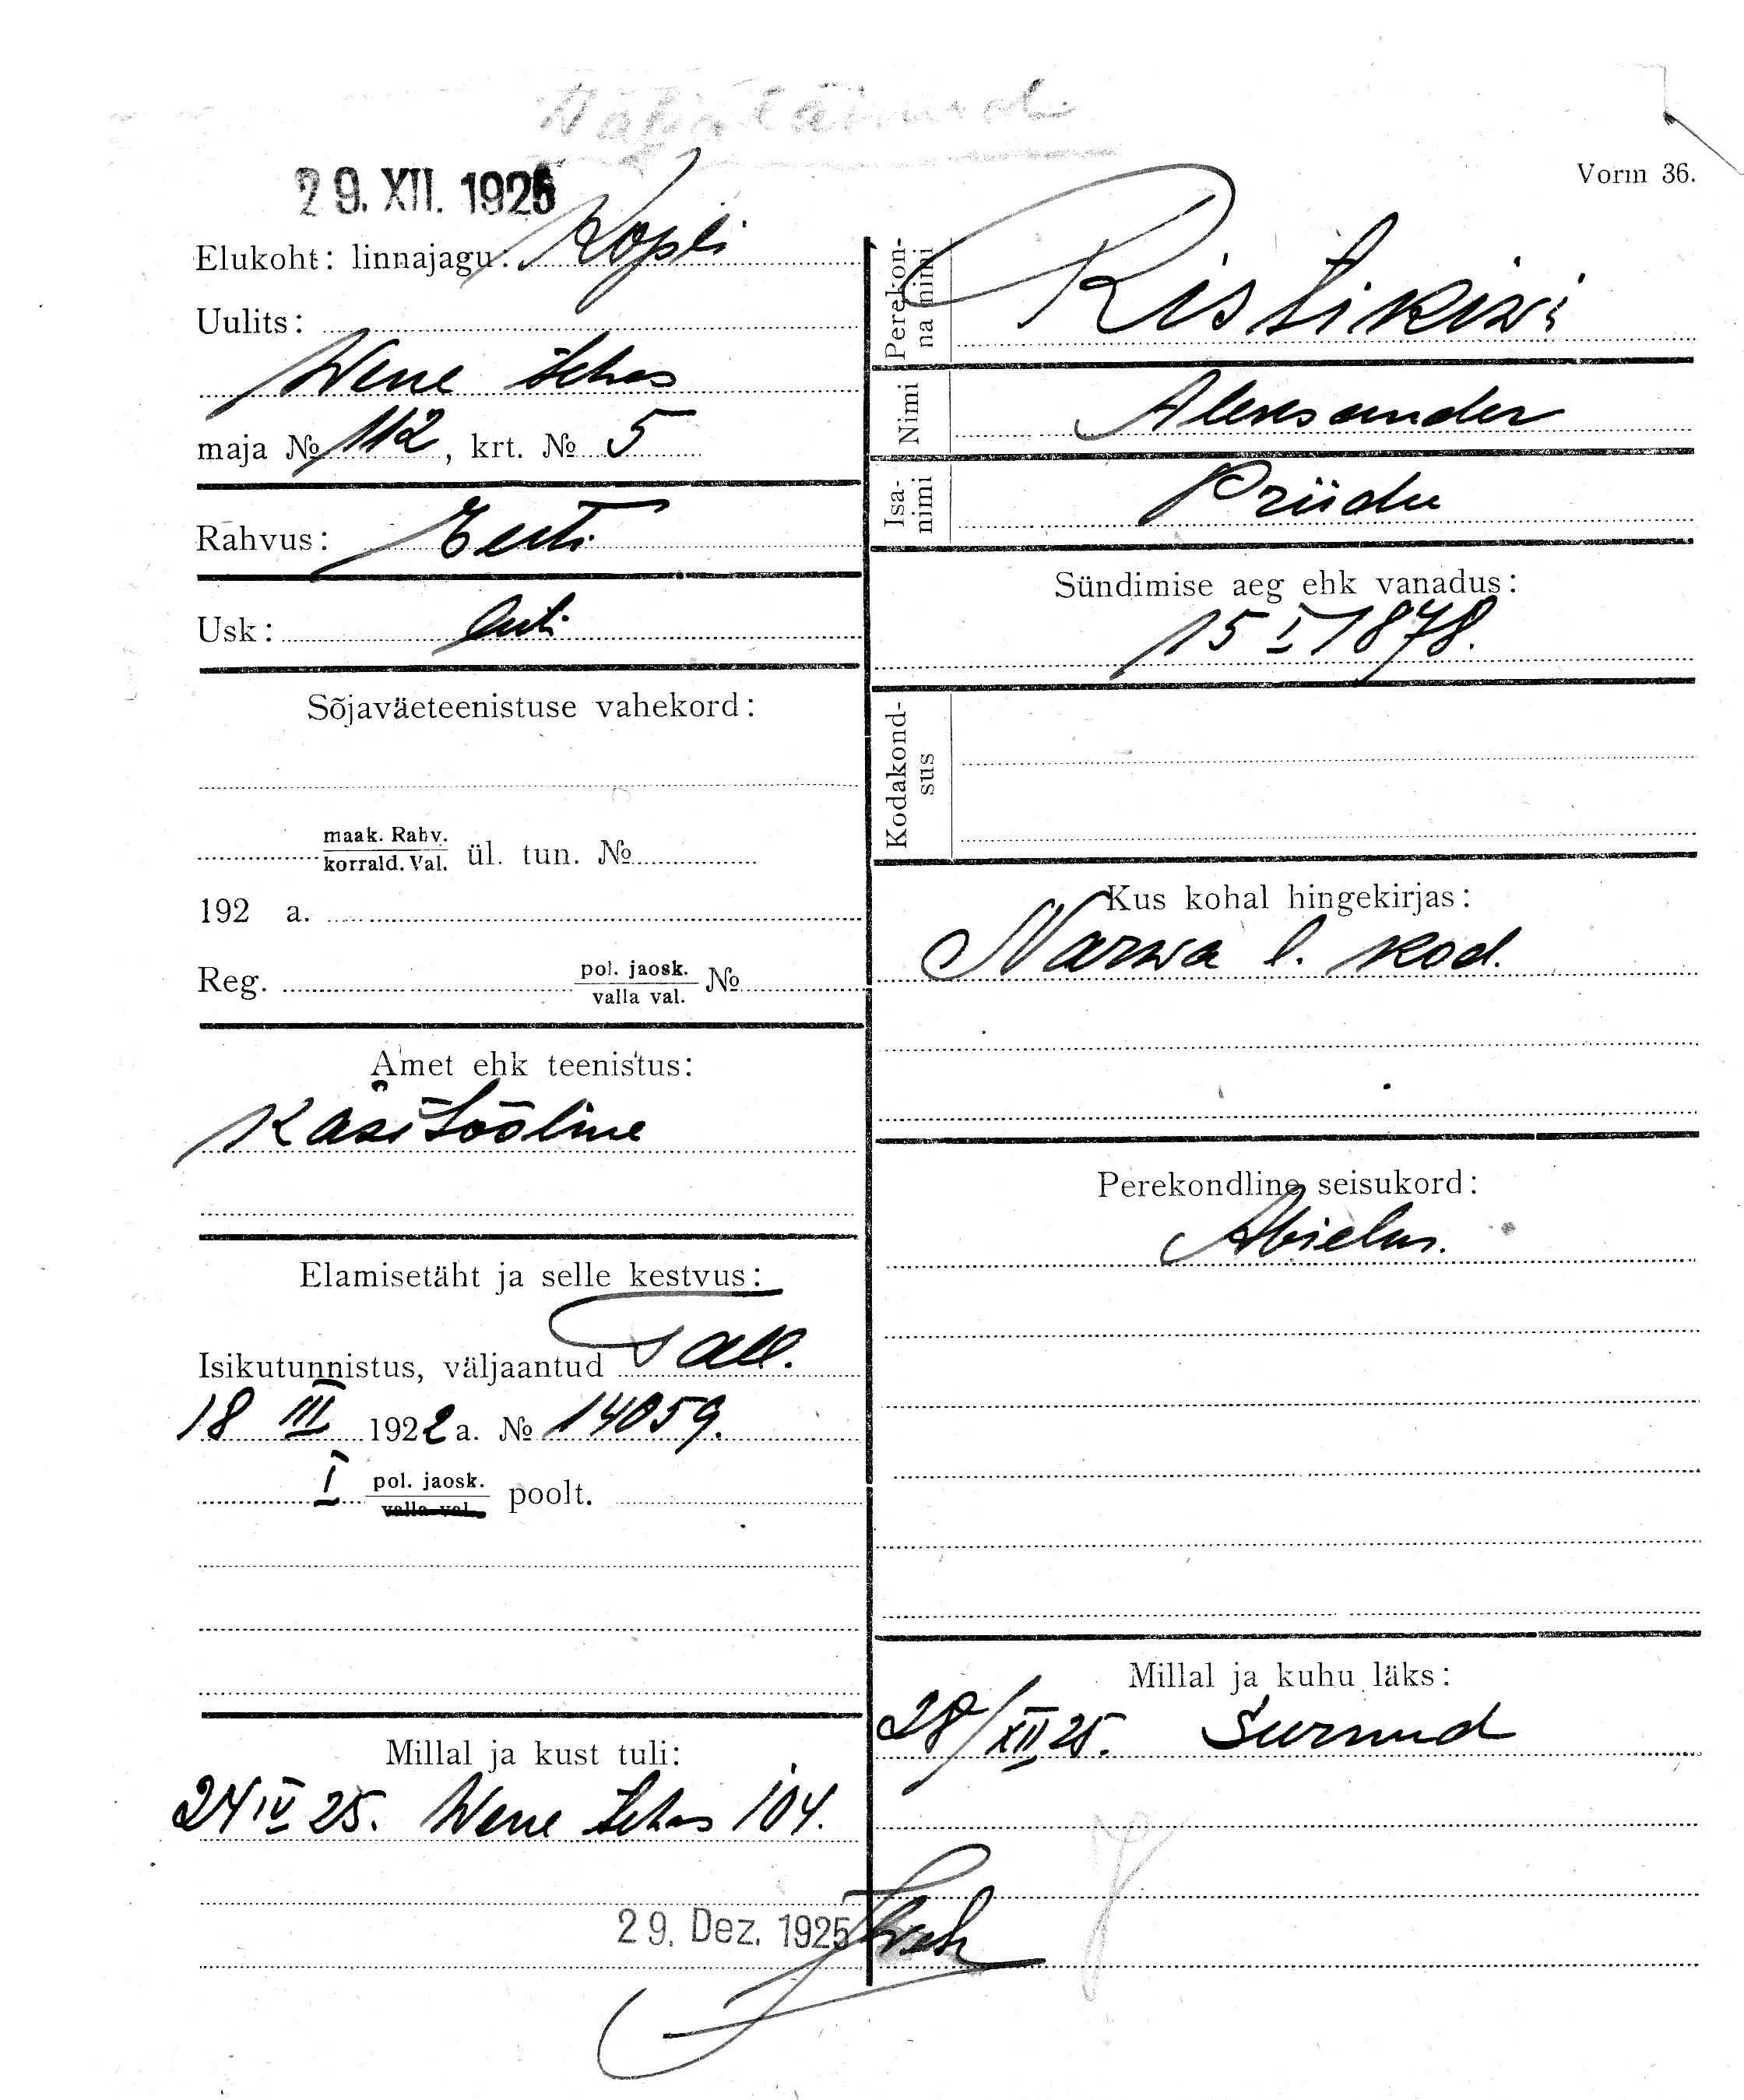 29. XII. 1925
Vorm 36.
Elukoht: linnajagu: Kopli
Uulits:
Wene tehas
maja № 112, krt. № 5
Rahvus: Eesti
Usk: luti
Sõjaväeteenistuse vahekord:
maak. Rahv.
korrald. Val. ül. tun. №
192 a.
Reg. pol. jaosk. №
valla val.
Amet ehk teenistus:
Käsitööline
Elamisetäht ja selle kestvus:
Isikutunnistus, väljaantud Tall.
18 III 1922 a. № 14059.
I pol. jaosk. poolt.
valla val.
Millal ja kust tuli:
24 IV 25. Wene tehas 104.
29. Dez. 1925
Perekon-
na nimi
Ristikiwi
Nimi Aleksander
Isa-
nimi
Priidu
Sündimise aeg ehk vanadus:
15 I 1878.
Kodakond-
sus
Kus kohal hingekirjas:
Narwa l. kod.
Perekondline seisukord:
Abielus.
Millal ja kuhu läks:
28/XII 25. Surnud